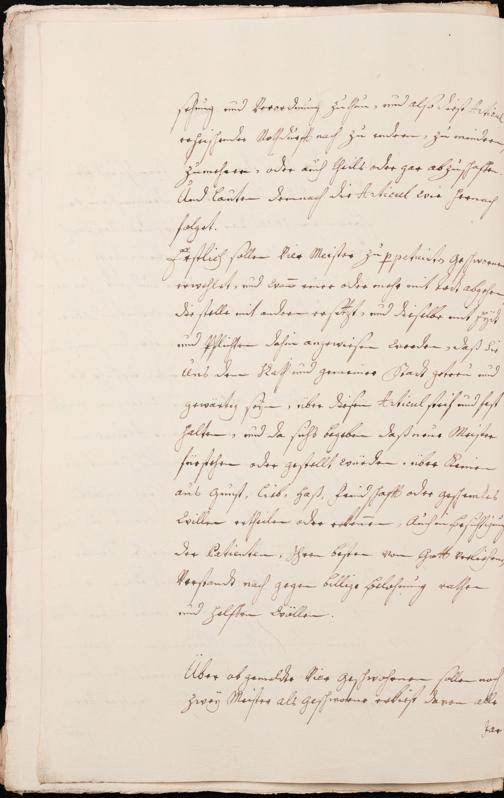 sehung und Verordnung zu thun, und also diese Articul
erheischender Nothdurfft nach zu endern, zu mindern
zumehren, oder auch theils oder gar abzuschaffen.
Und lauten demnach die Articul wie hernach
folget.
Erstlich sollen Vier Meister zu ppetuirten Geschwornen
erwehlet, und wann einer oder mehr mit todt abgehen
die stelle mit andern ersetzt, und dieselbe mit
und Pflichten dahin angewiesen werden, daß Sie
Uns dem Rath und gemeiner Stadt getreu und
gewärtig seyn, über diesen Articul steif und fest
halten, und da sichs begeben daß neue Meister
fürstehen oder gestellt würden, über Keinen
aus gunst, lieb, haß, feindschafft oder geschenkes
willen urtheilen oder erkennen, Auch in besichtigung
der Patienten, Ihren besten von Gott verliehenen
Verstandt nach gegen billige belohnung rathen
und helffen wöllen.
Über obgemeldte Vier Geschwohrnen sollen noch
zweÿ Meister als geschworne erkiest davon alle
Jar